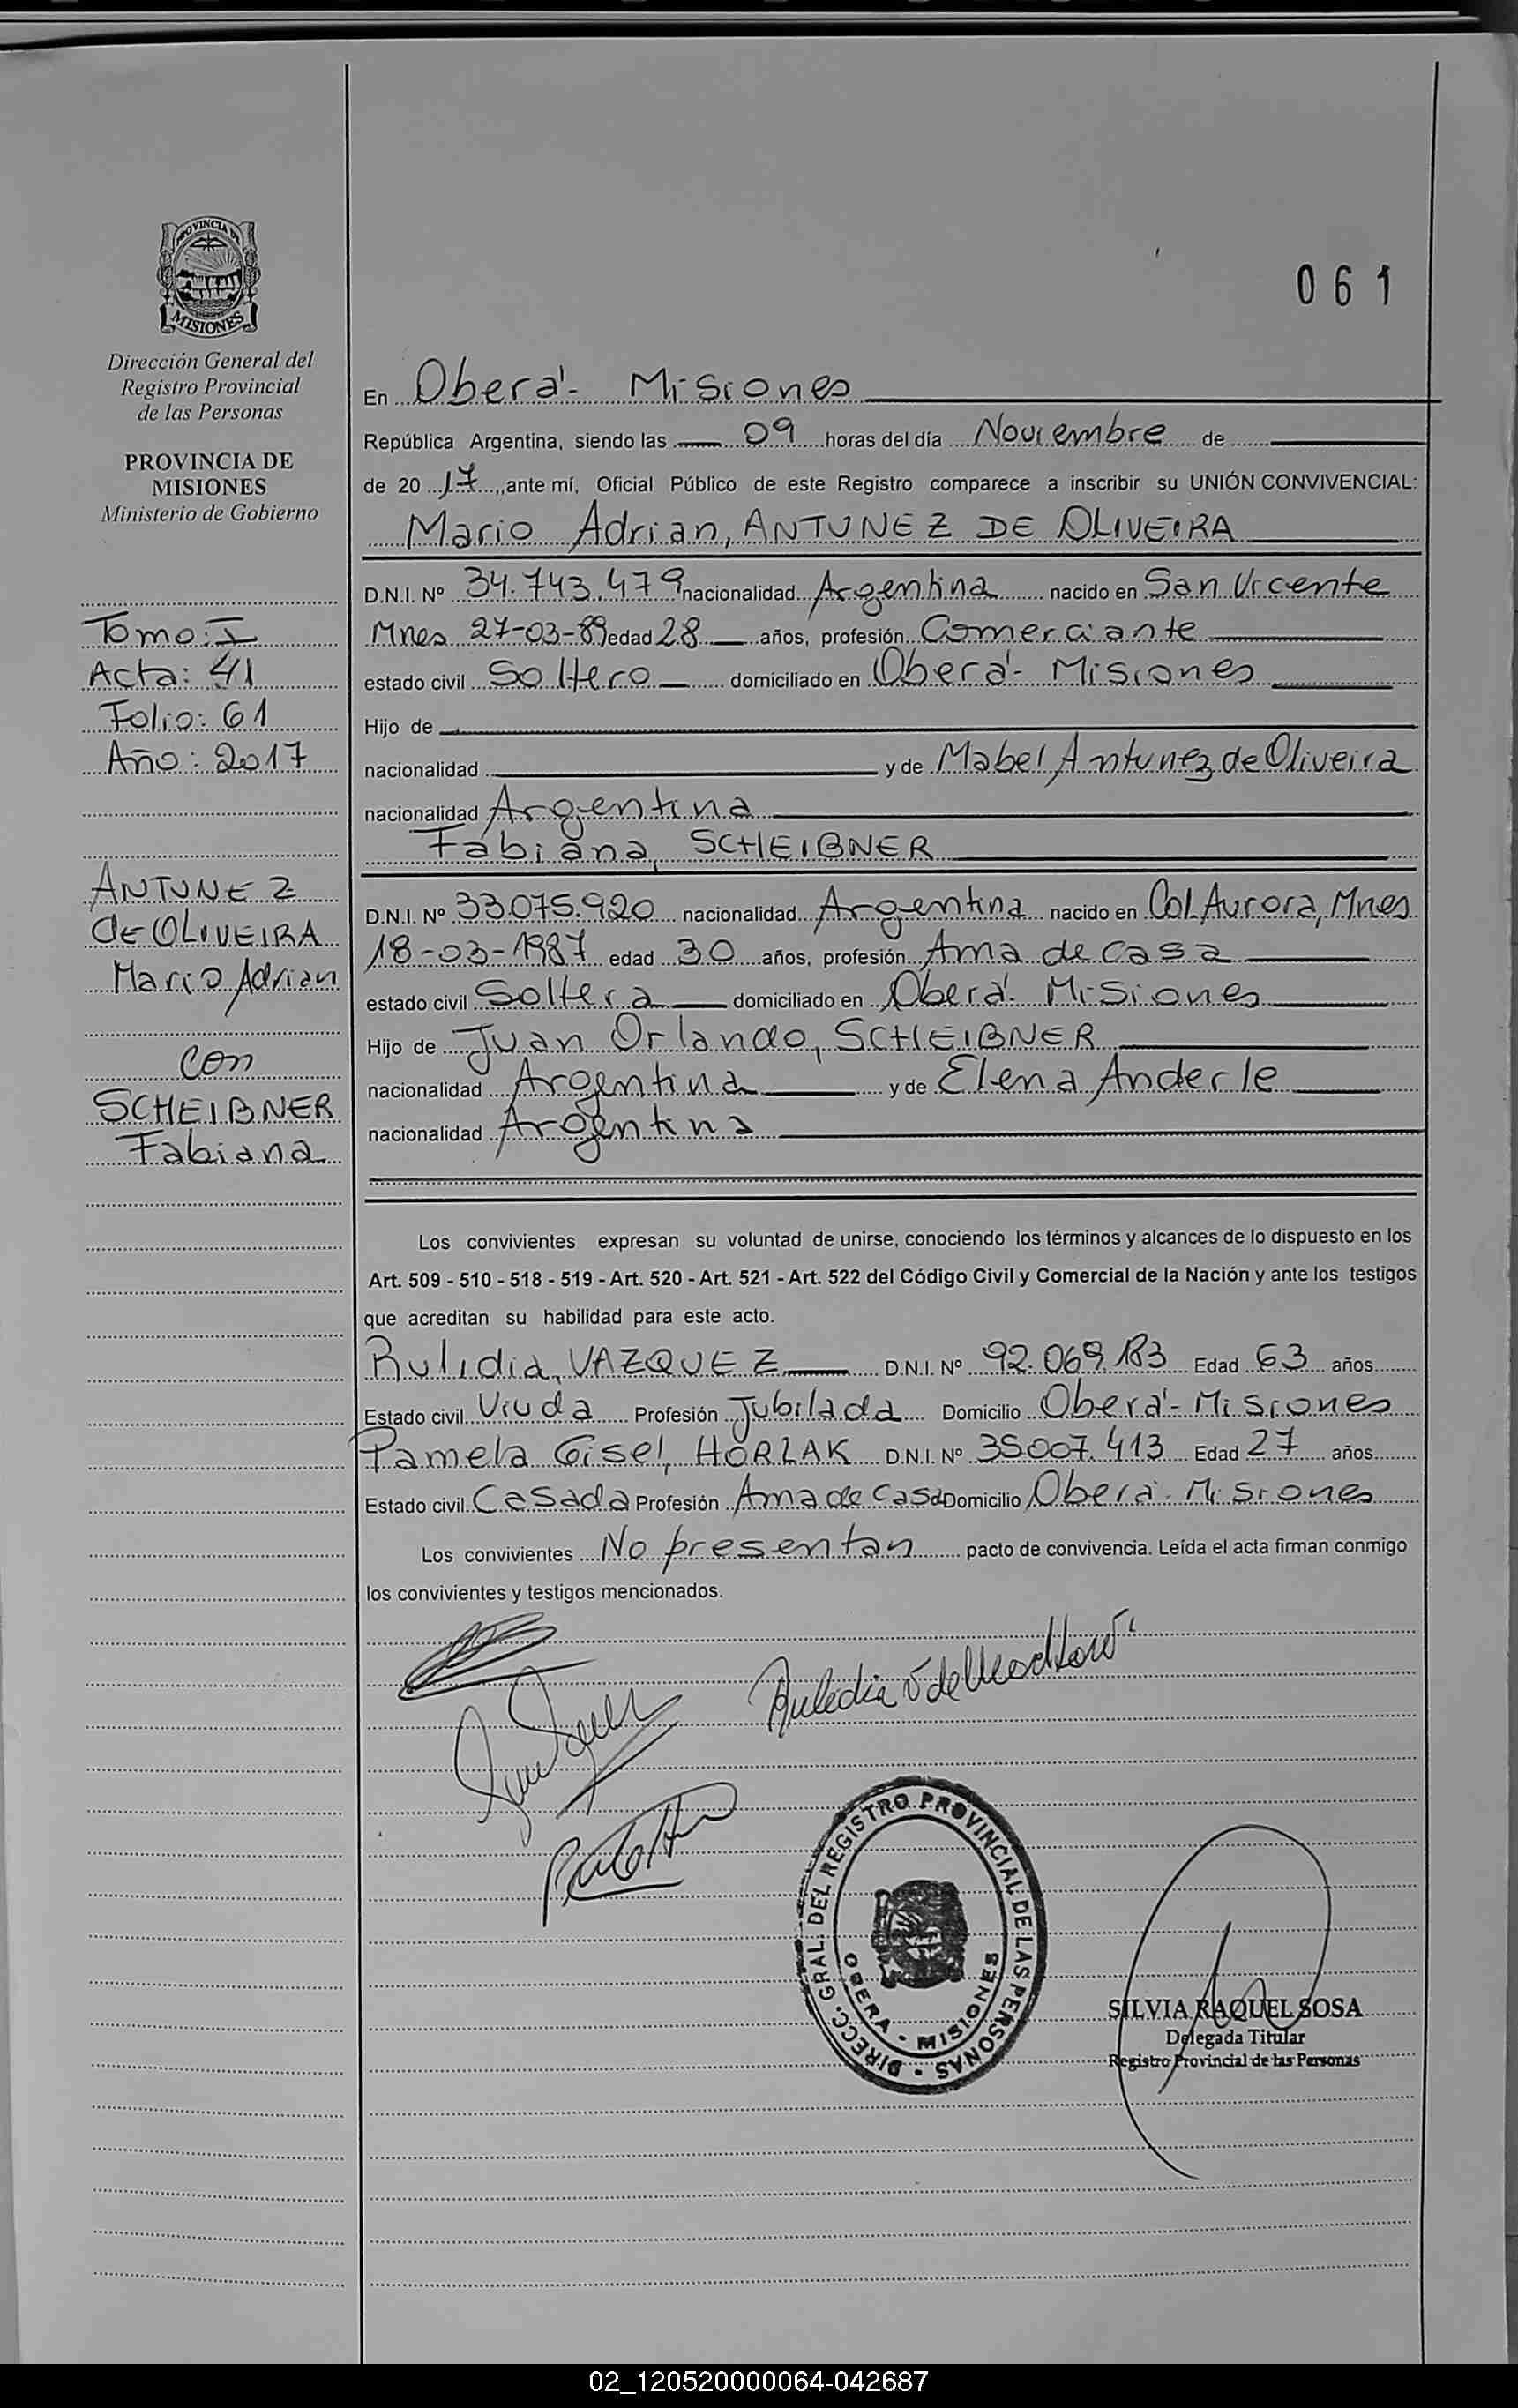 061
PROVINCIA DE
MISIONES
Dirección General del
Registro Provincial
de las Personas
PROVINCIA DE
MISIONES
Ministerio de Gobierno
Tomo: I
Acta: 41
Folio: 61
Año: 2017
ANTUNEZ
de OLIVEIRA
Mario Adrian
con
SCHEIBNER
Fabiana
En Oberá - Misiones
República Argentina, siendo las 09 horas del día Noviembre de
de 20 17, ante mí, Oficial Público de este Registro comparece a inscribir su UNIÓN CONVIVENCIAL:
Mario Adrian, ANTUNEZ DE OLIVEIRA
D.N.I. Nº 34.743.479 nacionalidad Argentina nacido en San Vicente
Mnes 27-03-89 edad 28 años, profesión Comerciante
estado civil Soltero domiciliado en Oberá - Misiones
Hijo de
nacionalidad y de Mabel Antunez de Oliveira
nacionalidad Argentina
Fabiana, SCHEIBNER
D.N.I. Nº 33.075.920 nacionalidad Argentina nacido en Col. Aurora, Mnes
18-03-1987 edad 30 años, profesión Ama de Casa
estado civil Soltera domiciliado en Oberá - Misiones
Hijo de Juan Orlando, SCHEIBNER
nacionalidad Argentina y de Elena Anderle
nacionalidad Argentina
Los convivientes expresan su voluntad de unirse, conociendo los términos y alcances de lo dispuesto en los
Art. 509 - 510 - 518 - 519 - Art. 520 - Art. 521 - Art. 522 del Código Civil y Comercial de la Nación y ante los testigos
que acreditan su habilidad para este acto.
Rulidia, VAZQUEZ D.N.I. Nº 92.069.183 Edad 63 años
Estado civil Viuda Profesión Jubilada Domicilio Oberá - Misiones
Pamela Gisel, HORLAK D.N.I. Nº 35.007.413 Edad 27 años
Estado civil Casada Profesión Ama de Casa Domicilio Oberá - Misiones
Los convivientes No presentan pacto de convivencia. Leída el acta firman conmigo
los convivientes y testigos mencionados.
DIRECC. GRAL. DEL REGISTRO PROVINCIAL DE LAS PERSONAS
OBERA - MISIONES
SILVIA RAQUEL SOSA
Delegada Titular
Registro Provincial de las Personas
02_120520000064-042687